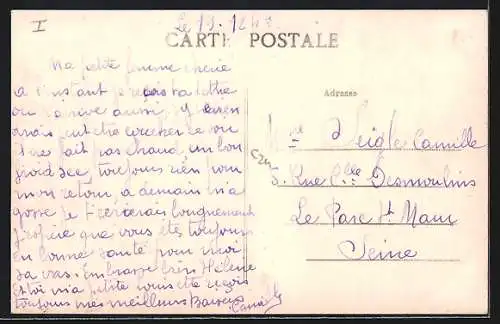 I
Le 19.12
CARTE POSTALE
Ma petite femme cherie
a l'instant je reçois ta lettre
ou
mais peut etre coucher ce soir
il ne fait pas chaud un bon
froid sec, toujours rien pour
mon retour a demain m'a
gosse je t'ecrierais longuement
J'espère que vous ete toujours
en bonne santé pour moi
sa vas. Embrasse bien Hélène
et toi m'a petite louis ete reçois
toujours mes meilleurs Baisers
Camille
Adresse
Mme Veigle Camille
5. Rue Clle Desmoulins
Le Parc St Maur
Seine